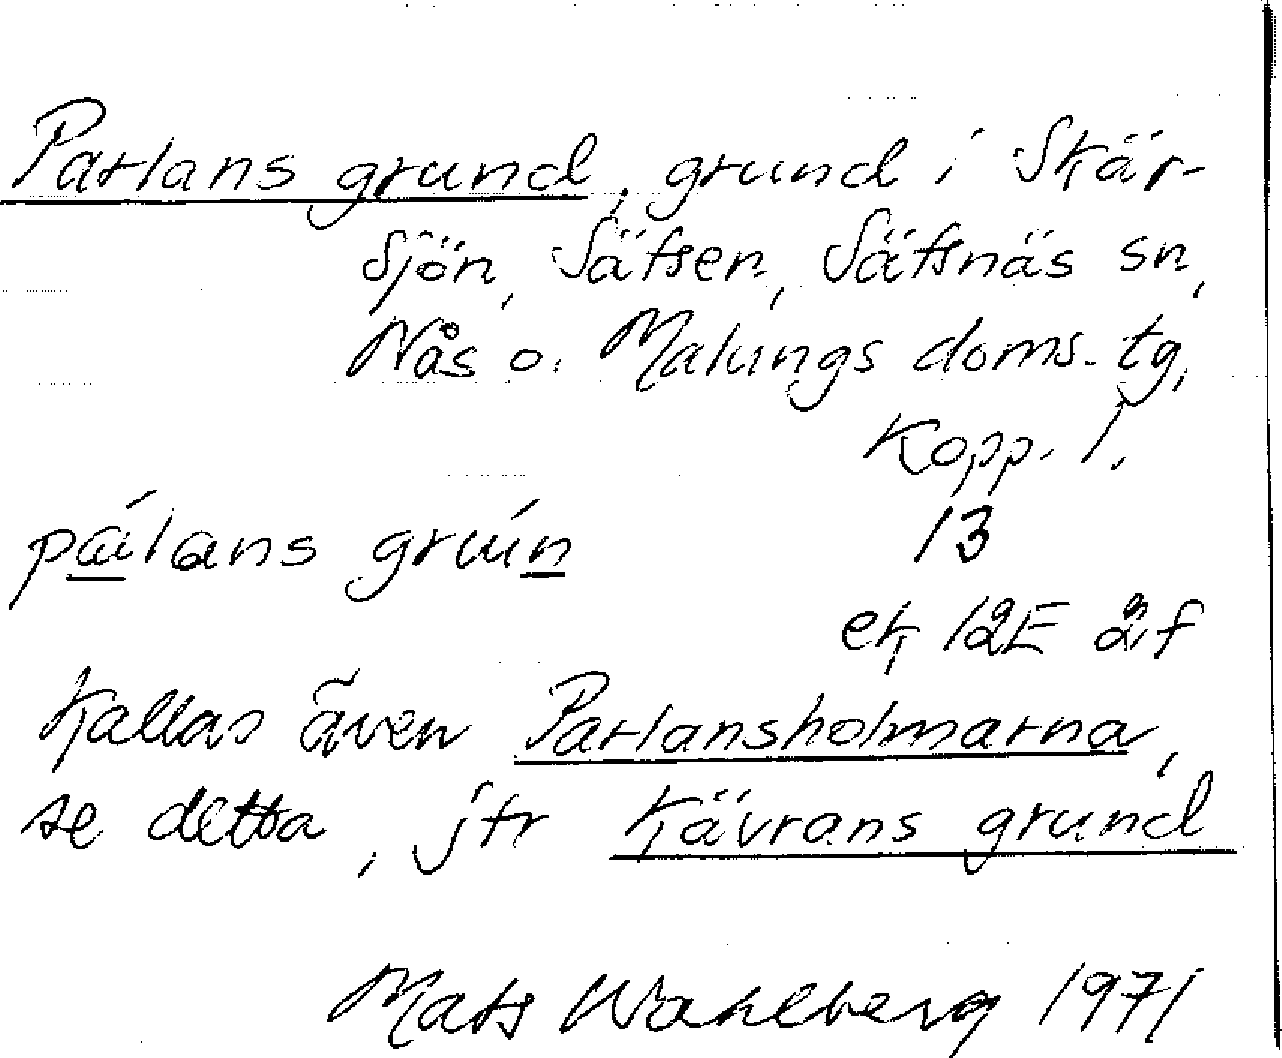 Parlans grund, grund i Skär-
sjön, Säfsen, Säfsnäs sn,
Nås o. Malungs doms. tg,
Kopp. l.
pálans gruin
13
ek 12E 2f
Kallas även Parlansholmarna,
se detta, jfr Kävrans grund
Mats Wahlberg 1971